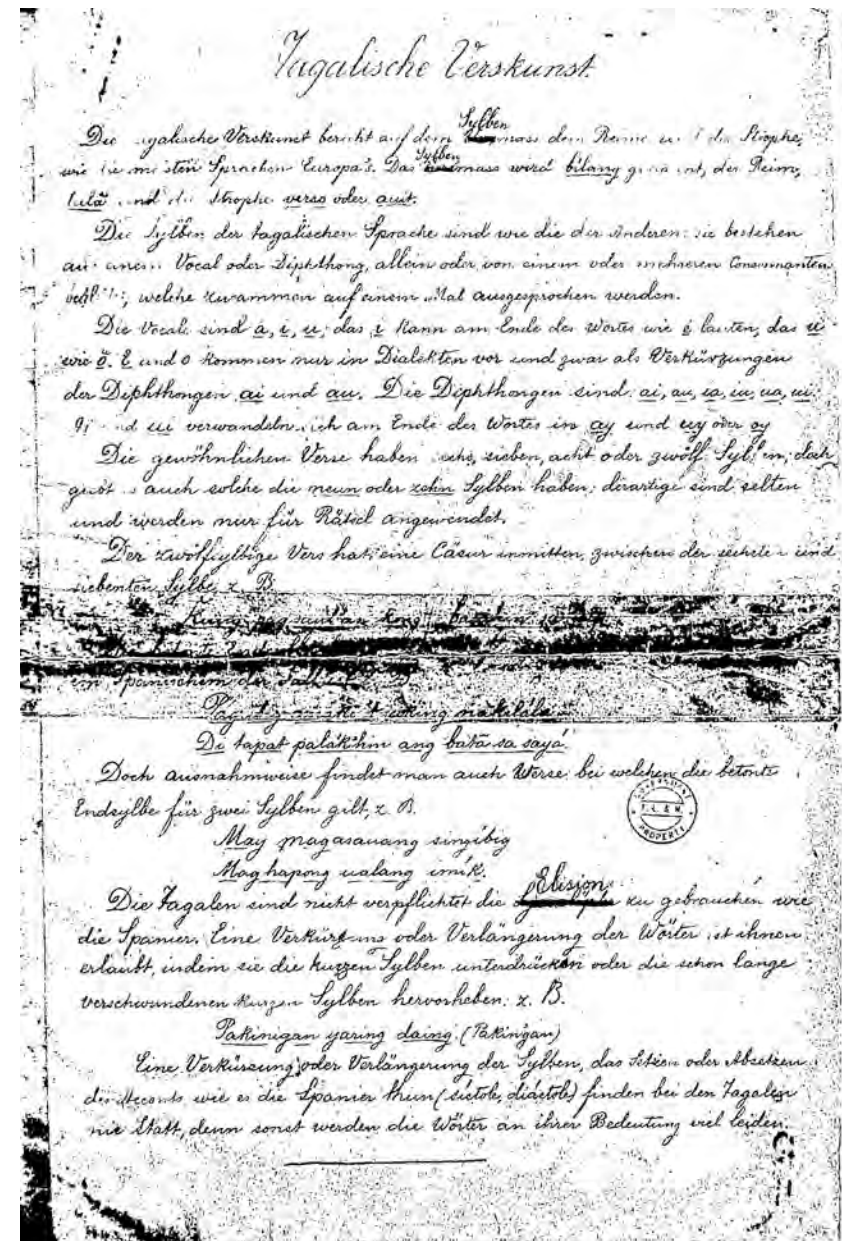 Tagalische Verskunst.
Die tagalische Verskunst beruht auf dem Sylbenmass dem Reime und der Strophe,
wie die meisten Sprachen Europa's. Das Sylbenmass wird bilang genannt, der Reim,
tulă und die Strophe verso oder auit.
Die Sylben der tagalischen Sprache sind wie die der Anderen: sie bestehen
aus einem Vocal oder Diphthong, allein oder von einem oder mehreren Consonnanten
welche zusammen auf einem Mal ausgesprochen werden.
Die Vocale sind a, i, u; das i kann am Ende des Wortes wie é lauten, das u
wie ŏ. E und o kommen nur in Dialekten vor und zwar als Verkürzungen
der Diphthongen ai und au. Die Diphthongen sind: ai, au, ia, iu, ua, ui.
und ui verwandeln sich am Ende des Wortes in ay und uy oder oy
Die gewöhnlichen Verse haben sechs, sieben, acht oder zwölf Sylben; doch
giebt es auch solche die neun oder zehn Sylben haben; derartige sind selten
und werden nur für Rätsel angewendet.
Der zwölfsylbige Vers hat eine Cäsur inmitten, zwischen der sechsten und
siebenten Sylbe, z. B.
Kung
Spanischem der
Di tapat palákihin ang batà sa sayá.
Doch ausnahmweise findet man auch Werse bei welchen die betonte
Endsylbe für zwei Sylben gilt, z. B.
GOVERNMENT PROPERTY
May magasauang singíbig
Maghapong ualang imík.
Die Tagalen sind nicht verpflichtet die Elision zu gebrauchen wie
die Spanier. Eine Verkürzung oder Verlängerung der Wörter ist ihnen
erlaubt, indem sie die kurzen Sylben unterdrücken oder die schon lange
verschwundenen kurzen Sylben hervorheben: z. B.
Pakinigan yaring daing. (Pakin͠gan)
Eine Verkürzung oder Verlängerung der Sylben, das Setzen oder Absetzen
des Accents wie es die Spanier thun (sístole, diástole) finden bei den Tagalen
nie Statt, denn sonst werden die Wörter an ihrer Bedeutung viel leiden.